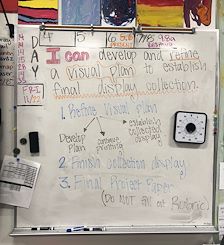 D
A
Y
4
5
FRI
I can develop and refine
a visual plan to establish
final display collection.
1. Refine Visual Plan
Develop Plan
continue printing
establish collected display
2. Finish collection display
3. Final Project Paper
(Do NOT fill out Rubric)